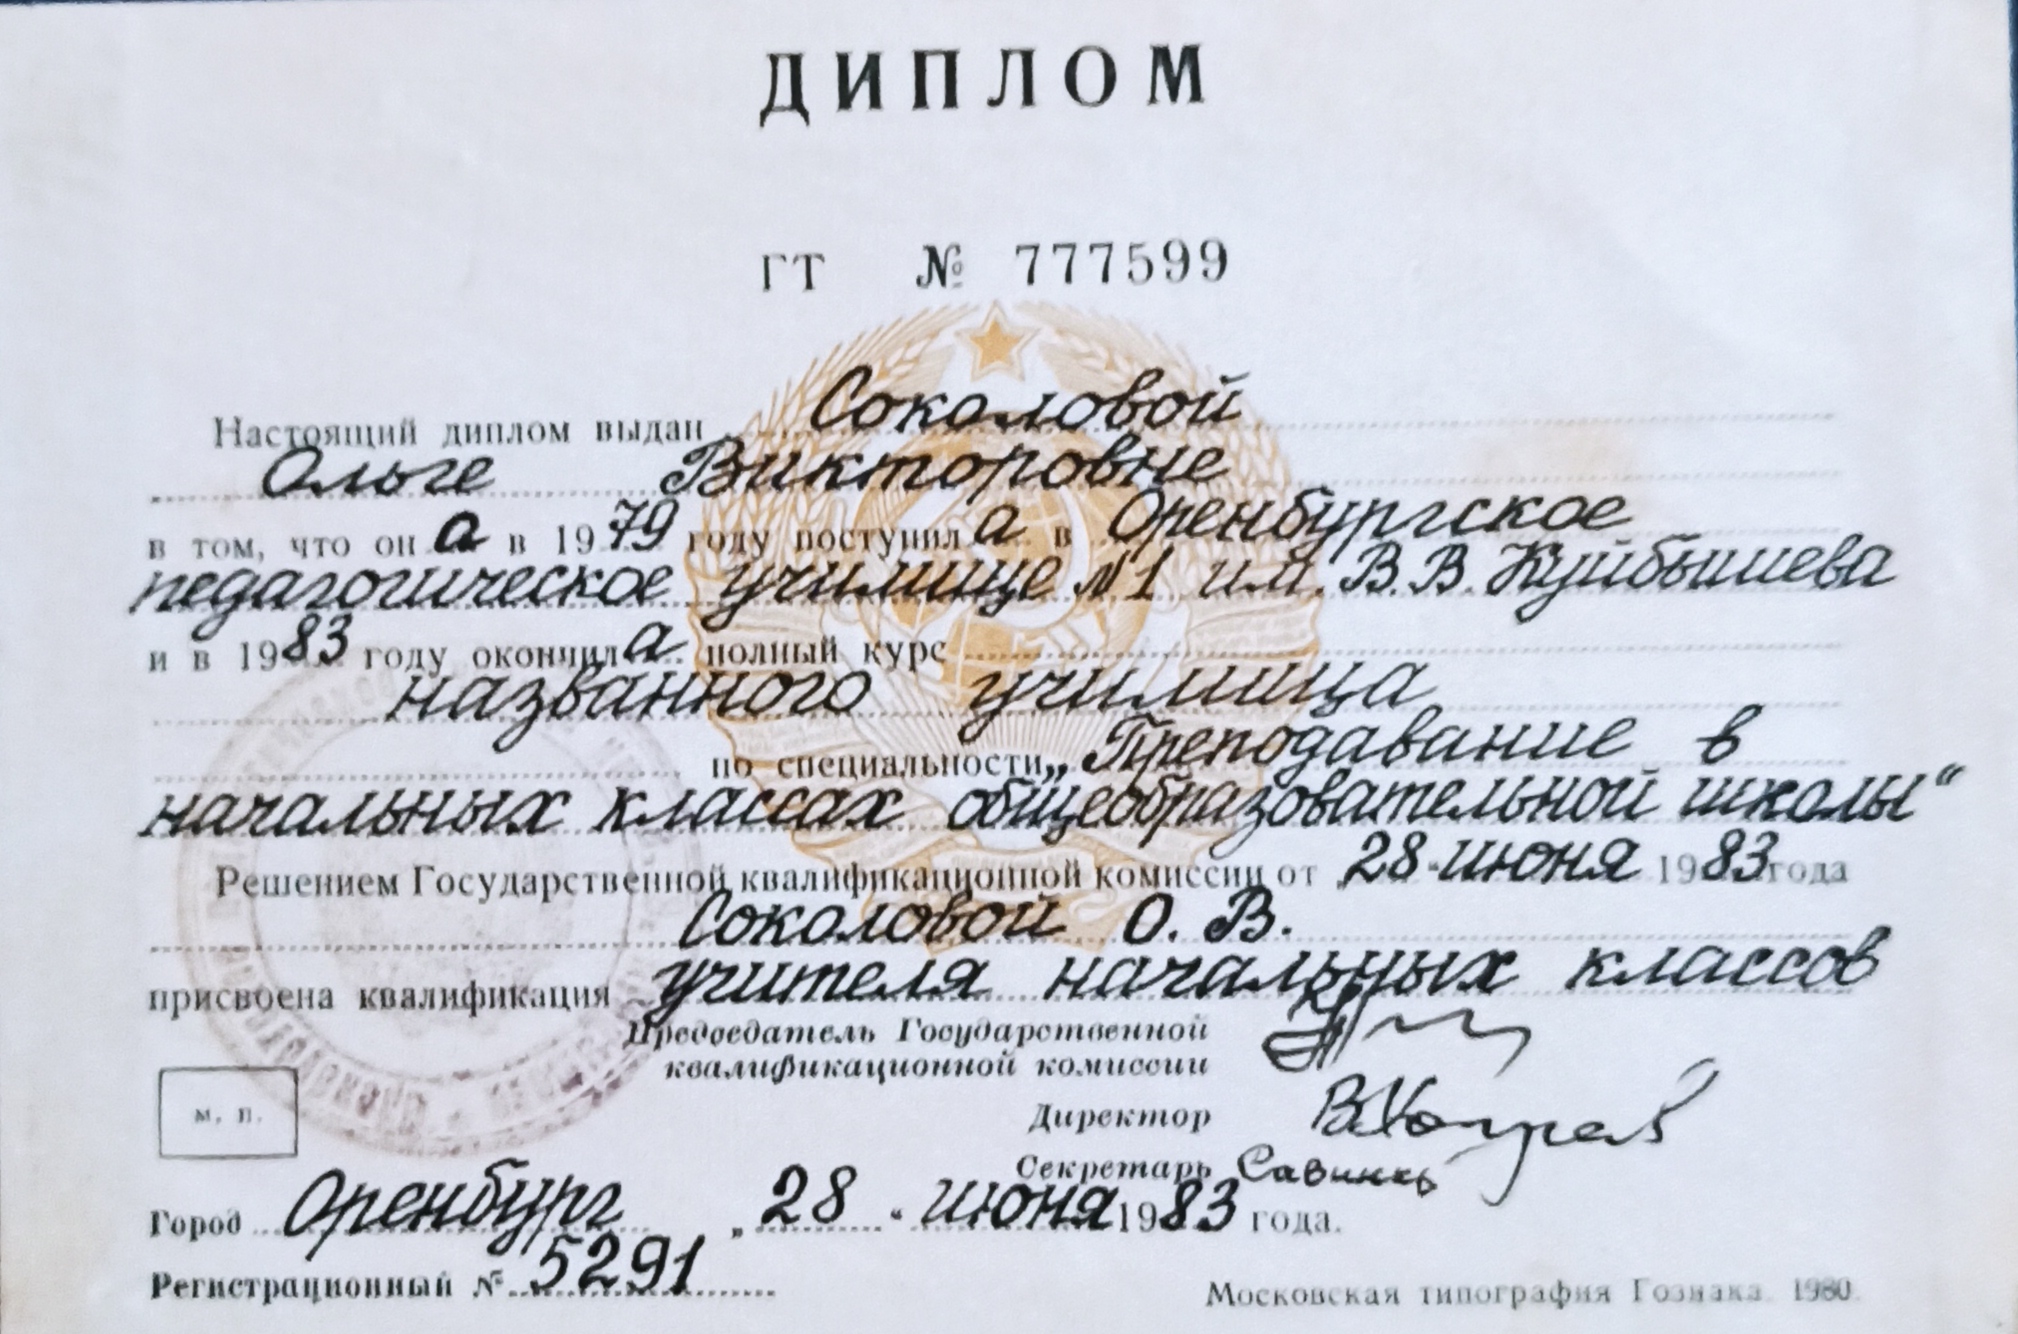 ДИПЛОМ
ГТ № 777599
Настоящий диплом выдан Соколовой
Ольге Викторовне
в том, что он а в 1979 году поступил а в Оренбургское
педагогическое училище №1 им. В.В. Куйбышева
и в 1983 году окончил а полный курс
названного училища
по специальности „Преподавание в
начальных классах общеобразовательной школы“
Решением Государственной квалификационной комиссии от „28“ июня 1983 года
Соколовой О. В.
присвоена квалификация учителя начальных классов
Председатель Государственной
квалификационной комиссии
Директор
Секретарь
м. п.
Город Оренбург „28“ июня 1983 года.
Регистрационный № 5291
Московская типография Гознака. 1980.